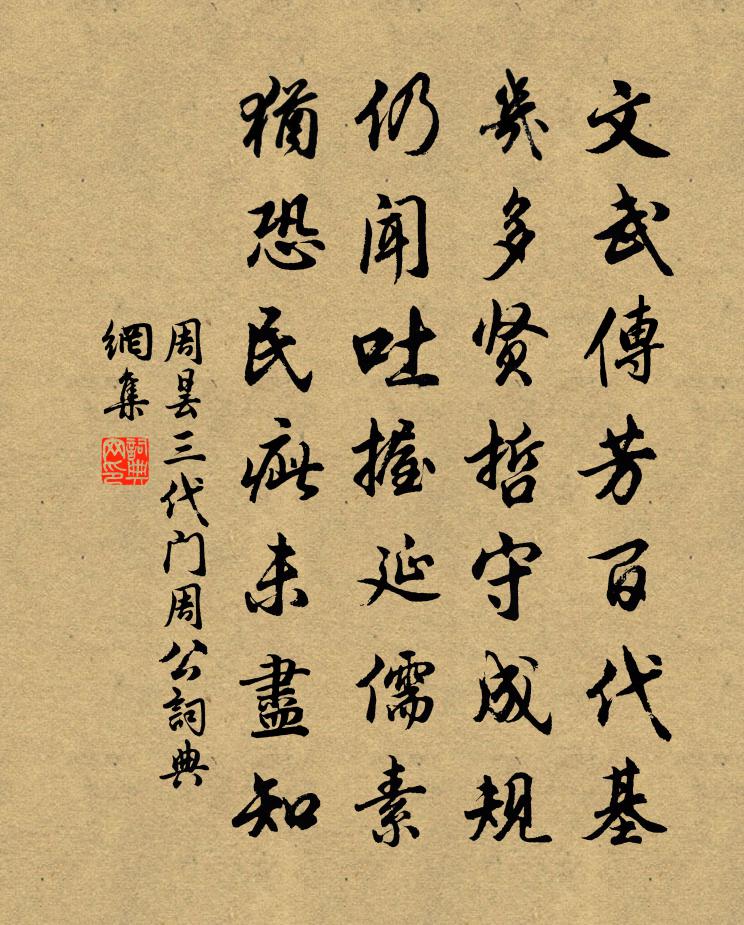 文武傳芳百代基
幾多贤哲守成規
仍闻吐握延儒素
猶恐民疵未盡知
周昙三代门周公詞典
網集
詞典
网印